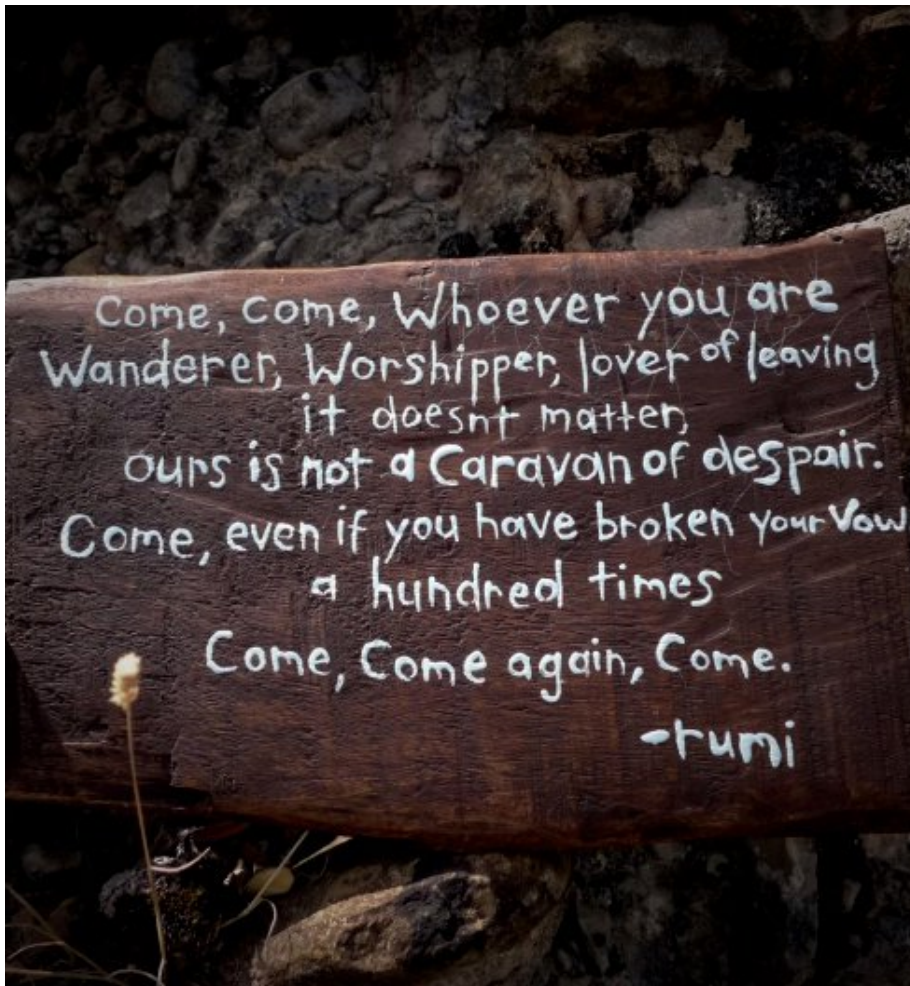 Come, Come, Whoever you are
Wanderer, Worshipper, lover of leaving
it doesnt matter,
ours is not a Caravan of despair.
Come, even if you have broken your Vow
a hundred times
Come, Come again, Come.
-rumi